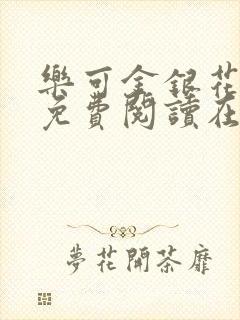 樂可金銀花
免費閱讀在
夢花開荼靡